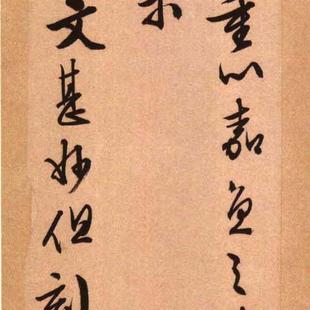 重以嘉魚之
文甚妙但刻